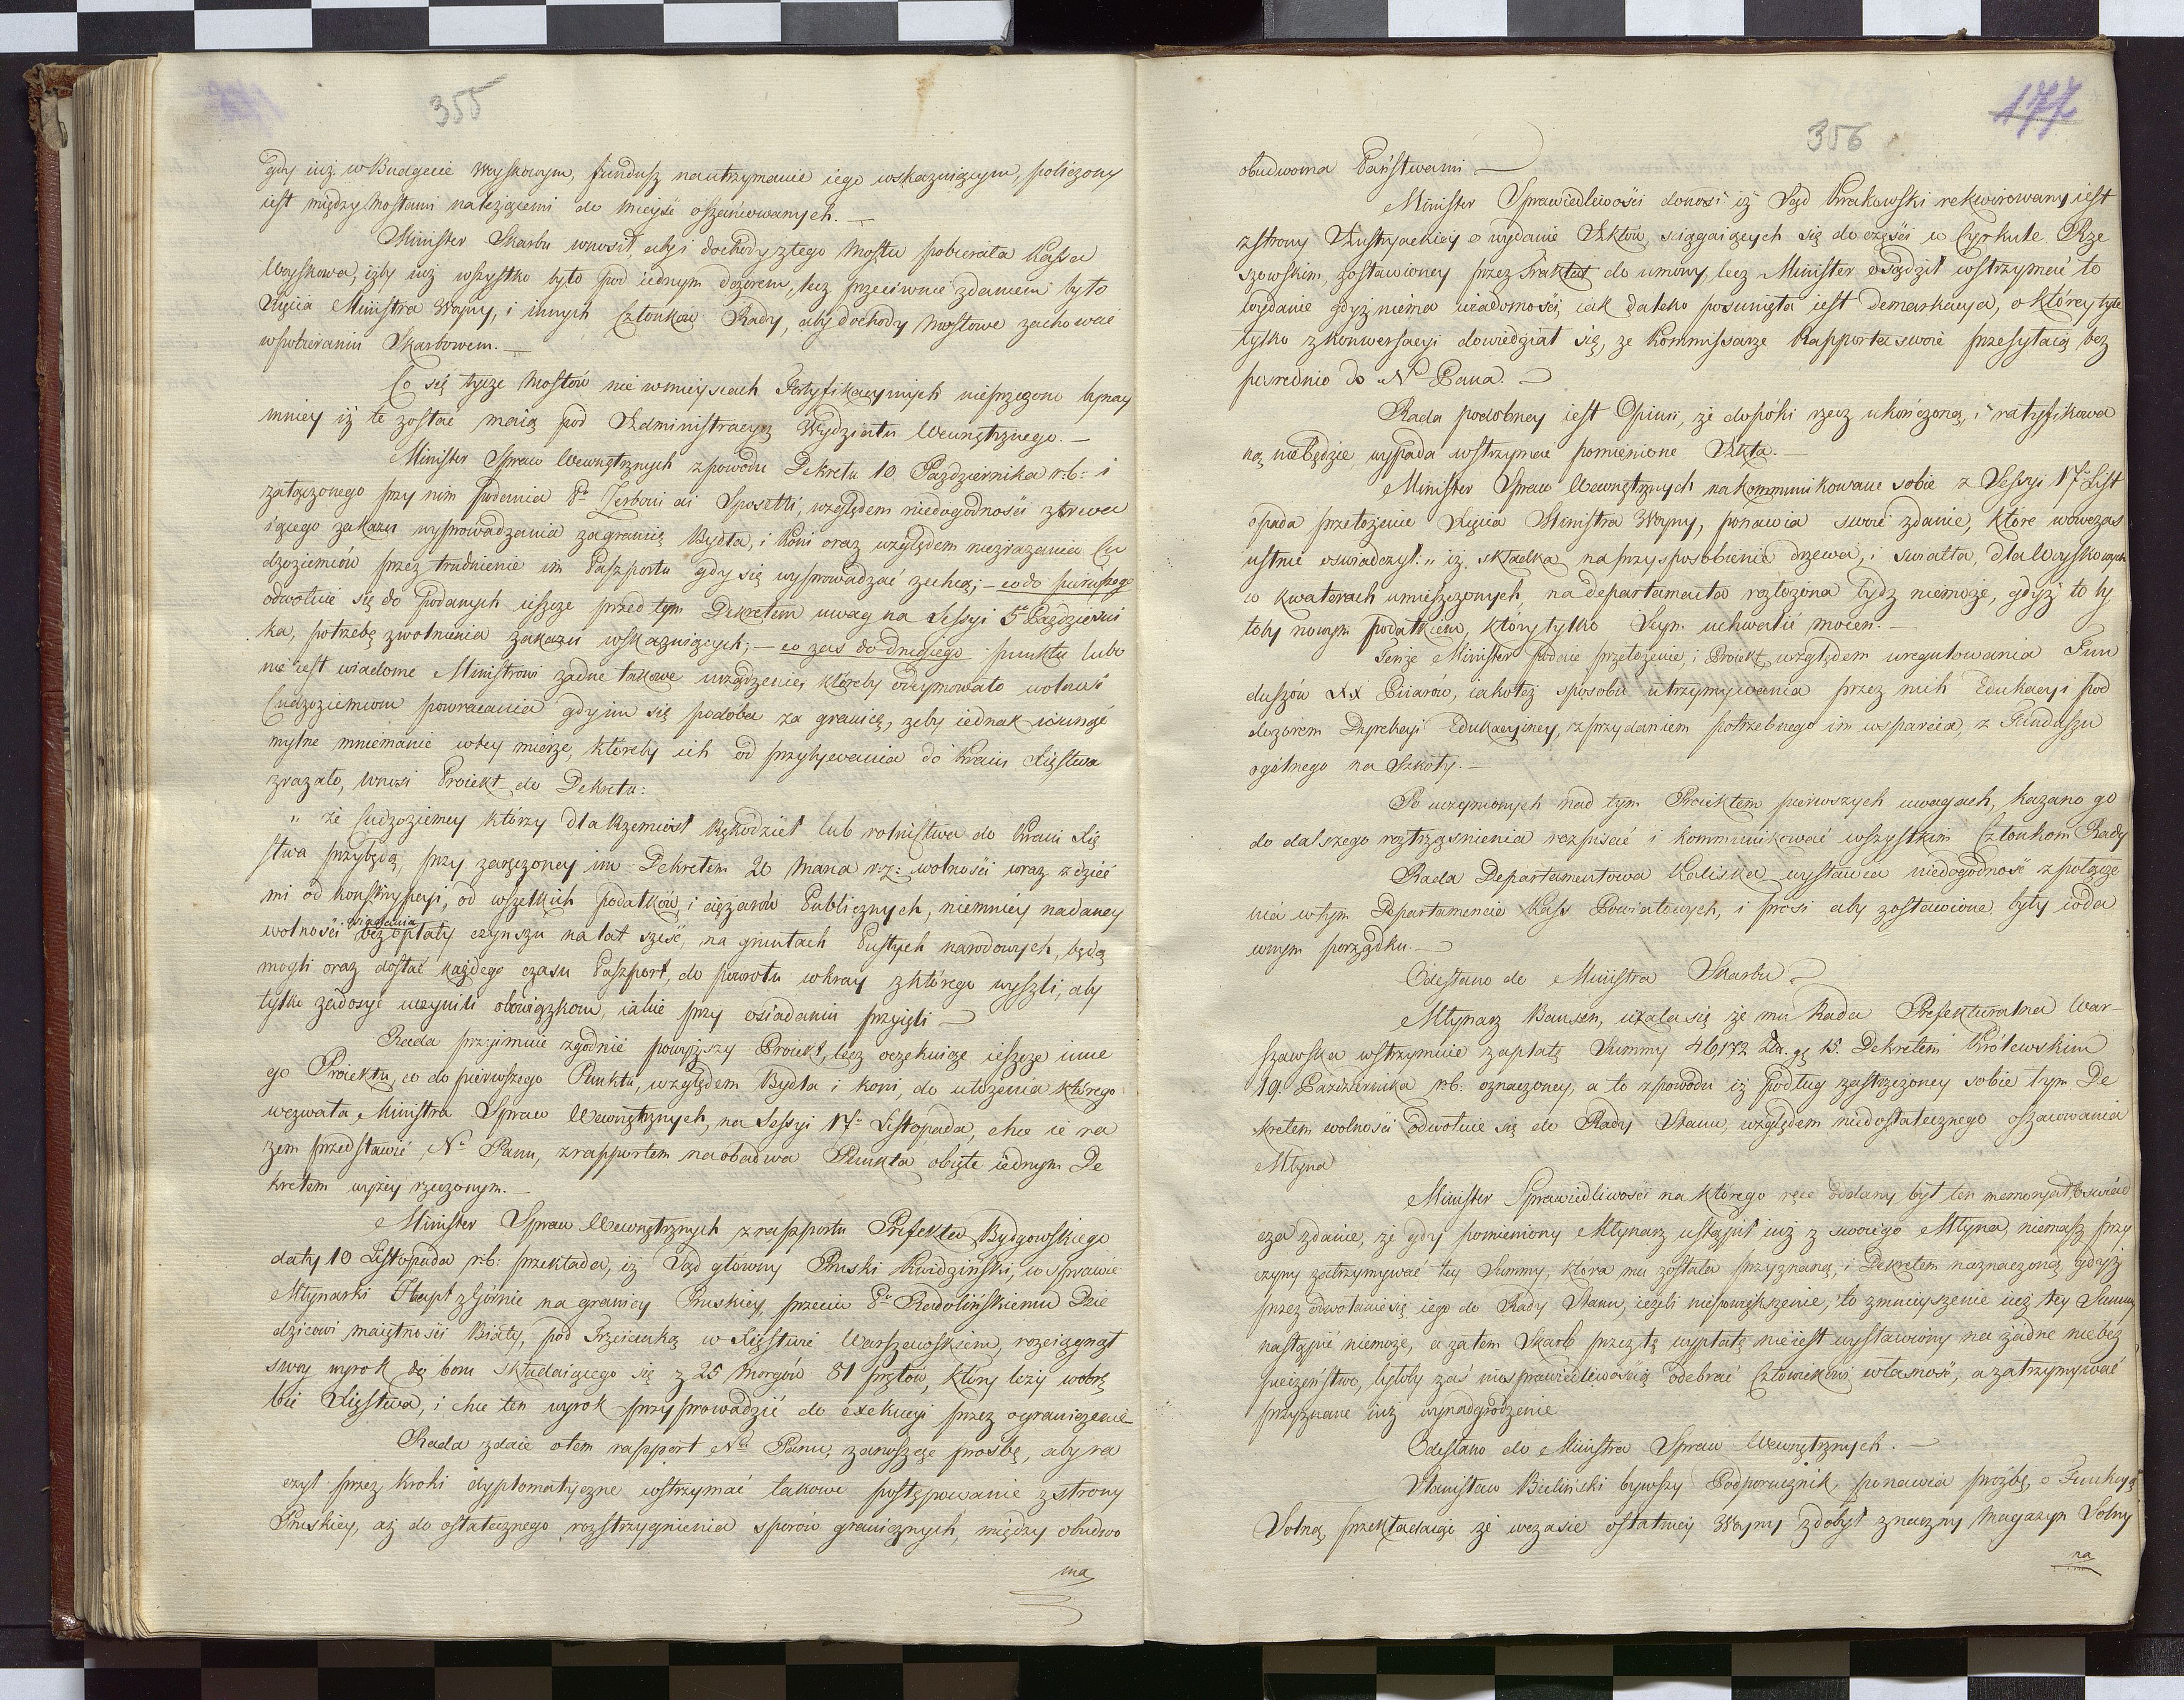 355
gdy iuż w Budgecie Woyskowym, fundusz na utrzymanie iego wskazuiącym, policzony
iest między Mostami należącemi do mieysć oszańcowanych. —
Minister Skarbu wnosił, aby i dochody z tego Mostu pobierała Kassa
Woyskowa, iżby iuż wszystko było pod iednym dozorem, lecz przeciwne zdaniem było
Xięcia Ministra Woyny, i innych Członków Rady, aby dochody mostowe zachować
w pobieraniu Skarbowem. —
Co się tycze Mostów nie w mieyscach Fortyfikacyinych nieprzeczono bynay
mniey iż te zostać maią pod Administracyą Wydziału Wewnętrznego. —
Minister Spraw Wewnętrznych z powodu Dekretu 10 Października r: b: i
załączonego przy nim podania Pa Zerboni di Sposetti, względem niedogodności z trwa
iącego zakazu wyprowadzania zagranicę Bydła, i Koni oraz względem niezrażania Cu
dzoziemców przez trudnienie im Paszportu gdy się wyprowadzać zechcą; — co do pierwszego
odwołuie się do podanych ieszcze przed tym Dekretem uwag na Sessyi 5 Październi
ka, potrzebę zwolnienia zakazu wskazuiących; — co zaś do drugiego punktu lubo
nie iest wiadome Ministrowi żadne takowe urządzenie, któreby odeymowało wolność
Cudzoziemcom powracania gdy im się podoba za granicę, żeby iednak usunąć
mylne mniemanie w tey mierze, któreby ich od przybywania do Kraiu Xięstwa
zrażało, wnosi Proiekt do Dekretu:
" że Cudzoziemcy którzy dla Rzemiosł Rękodzieł lub rolnictwa do Kraiu Xię
stwa przybędą, przy zaręczoney im Dekretem 20 Marca r: z: wolności wraz z dzieć
mi od konskrypcyi, od wszelkich podatków i ciężarów Publicznych, niemniey nadaney
wolności osiadania bez opłaty czynszu na lat sześć, na gruntach Pustych narodowych, będą
mogli oraz dostać każdego czasu Paszport, do powrotu w kray z którego wyszli, aby
tylko zadosyć uczynili obowiązkom, iakie przy osiadaniu przyięli —
Rada przyimuie zgodnie powyższy Proiekt, lecz oczekuiąc ieszcze inne
go Proiektu, co do pierwszego Punktu, względem Bydła i koni, do ułożenia którego
wezwała Ministra Spraw Wewnętrznych, na Sessyi 17. Listopada, chce ie ra
zem przedstawić, No Panu, z rapportem na obadwa Punkta obięte iednym De
kretem wyżey rzeczonym. —
Minister Spraw Wewnętrznych z rapportu Prefekta Bydgowskiego
daty 10 Listopada r: b: przekłada, iż Sąd główny Pruski Kwidziński, w sprawie
Młynarki Haupt z Gornic na granicy Pruskiey, przeciw Pu Radolińskiemu Dzie
dzicowi maiętności Białey, pod Trzcianką w Xięstwie Warszawskim, rozciągnął
swoy wyrok do boru składaiącego się z 25 Morgów 81 prętów, który leży w obrę
bie Xięstwa, i chce ten wyrok przyprowadzić do exekucyi przez ograniczenie —
Rada zdaie o tem rapport Nu Panu, zanosząc prośbę, aby ra
czył przez kroki dyplomatyczne wstrzymać takowe postępowanie z strony
Pruskiey, aż do ostatecznego rozstrzygnienia sporów granicznych, między obudwo
ma
177
356
obudwoma Państwami —
Minister Sprawiedliwości donosi iż Sąd Krakowski rekwirowany iest
z strony Austryackiey o wydanie Aktów, sciągaiących się do części w Cyrkule Rze
szowskim, zostawioney przez Traktat do umowy, lecz Minister osądził wstrzymać to
wydanie gdyż niema wiadomości, iak daleko posunięta iest demarkacya, o którey tyle
tylko z konwersacyi dowiedział się, że Kommissarze Rapporta swoie przesyłaią bez
posrednio do No Pana. —
Rada podobney iest Opinii, że dopóki rzecz ukończoną, i ratyfikowa
ną niebędzie, wypada wstrzymać pomienione Akta. —
Minister Spraw Wewnętrznych na kommunikowane sobie z Sessyi 17 List
opada przełożenie Xięcia Ministra Woyny, ponawia swoie zdanie, które wowczas
ustnie oswiadczył: „ iż składka, na przysposobienie drzewa, i swiatła, dla Woyskowych
w kwaterach umieszczonych, na departamenta rozłożona bydź niemoże, gdyż to by
łoby nowym podatkiem, który tylko Seym uchwalić mocen. —
Tenże Minister podaie przełożenie, i Proiekt względem uregulowania Fun
duszów XX Piiarów, iakoteż sposobu utrzymywania przez nich Edukacyi pod
dozorem Dyrekcyi Edukacyiney, z przydaniem potrzebnego im wsparcia, z Funduszu
ogólnego na Szkoły. —
Po uczynionych nad tym Proiektem pierwszych uwagach, kazano go
do dalszego roztrząsnienia rozpisać i kommunikować wszystkim Członkom Rady
Rada Departamentowa Kaliska wystawia niedogodność z połącze
nia w tym Departamencie Kass Powiatowych, i prosi aby zostawione były w da
wnym porządku. —
Odesłano do Ministra Skarbu —
Młynarz Bansen, użala się że mu Rada Prefekturalna War-
szawska wstrzymuie zapłatę Summy 46,172 Złł. gr 15. Dekretem Królewskim
19. Października r: b: oznaczoney, a to z powodu iż podług zastrzeżoney sobie tym De
kretem wolności odwołuie się do Rady Stanu, względem niedostatecznego oszacowania
Młyna
Minister Sprawiedliwości na którego ręce oddany był ten memoryał, oswiad
cza zdanie, że gdy pomieniony Młynarz ustąpił iuż z swoiego Młyna, niemasz przy
czyny zatrzymywać tey Summy, która mu została przyznaną, i Dekretem naznaczoną gdyż
przez odwołanie się iego do Rady Stanu, ieżeli niepowiększenie, to zmnieyszenie iuż tey Summy
nastąpić niemoże, a zatem Skarb przez tę wypłatę nie iest wystawiony na żadne niebez
pieczeństwo, byłoby zaś niesprawiedliwością odebrać Człowiekowi własność, a zatrzymywać
przyznane iuż wynadgrodzenie
Odesłano do Ministra Spraw Wewnętrznych. —
Stanisław Bieliński bywszy Podporucznik, ponawia prożbę, o Funkcyą
Solną, przekładaiąc że w czasie ostatniey Woyny zdobył znaczny Magazyn Solny
na